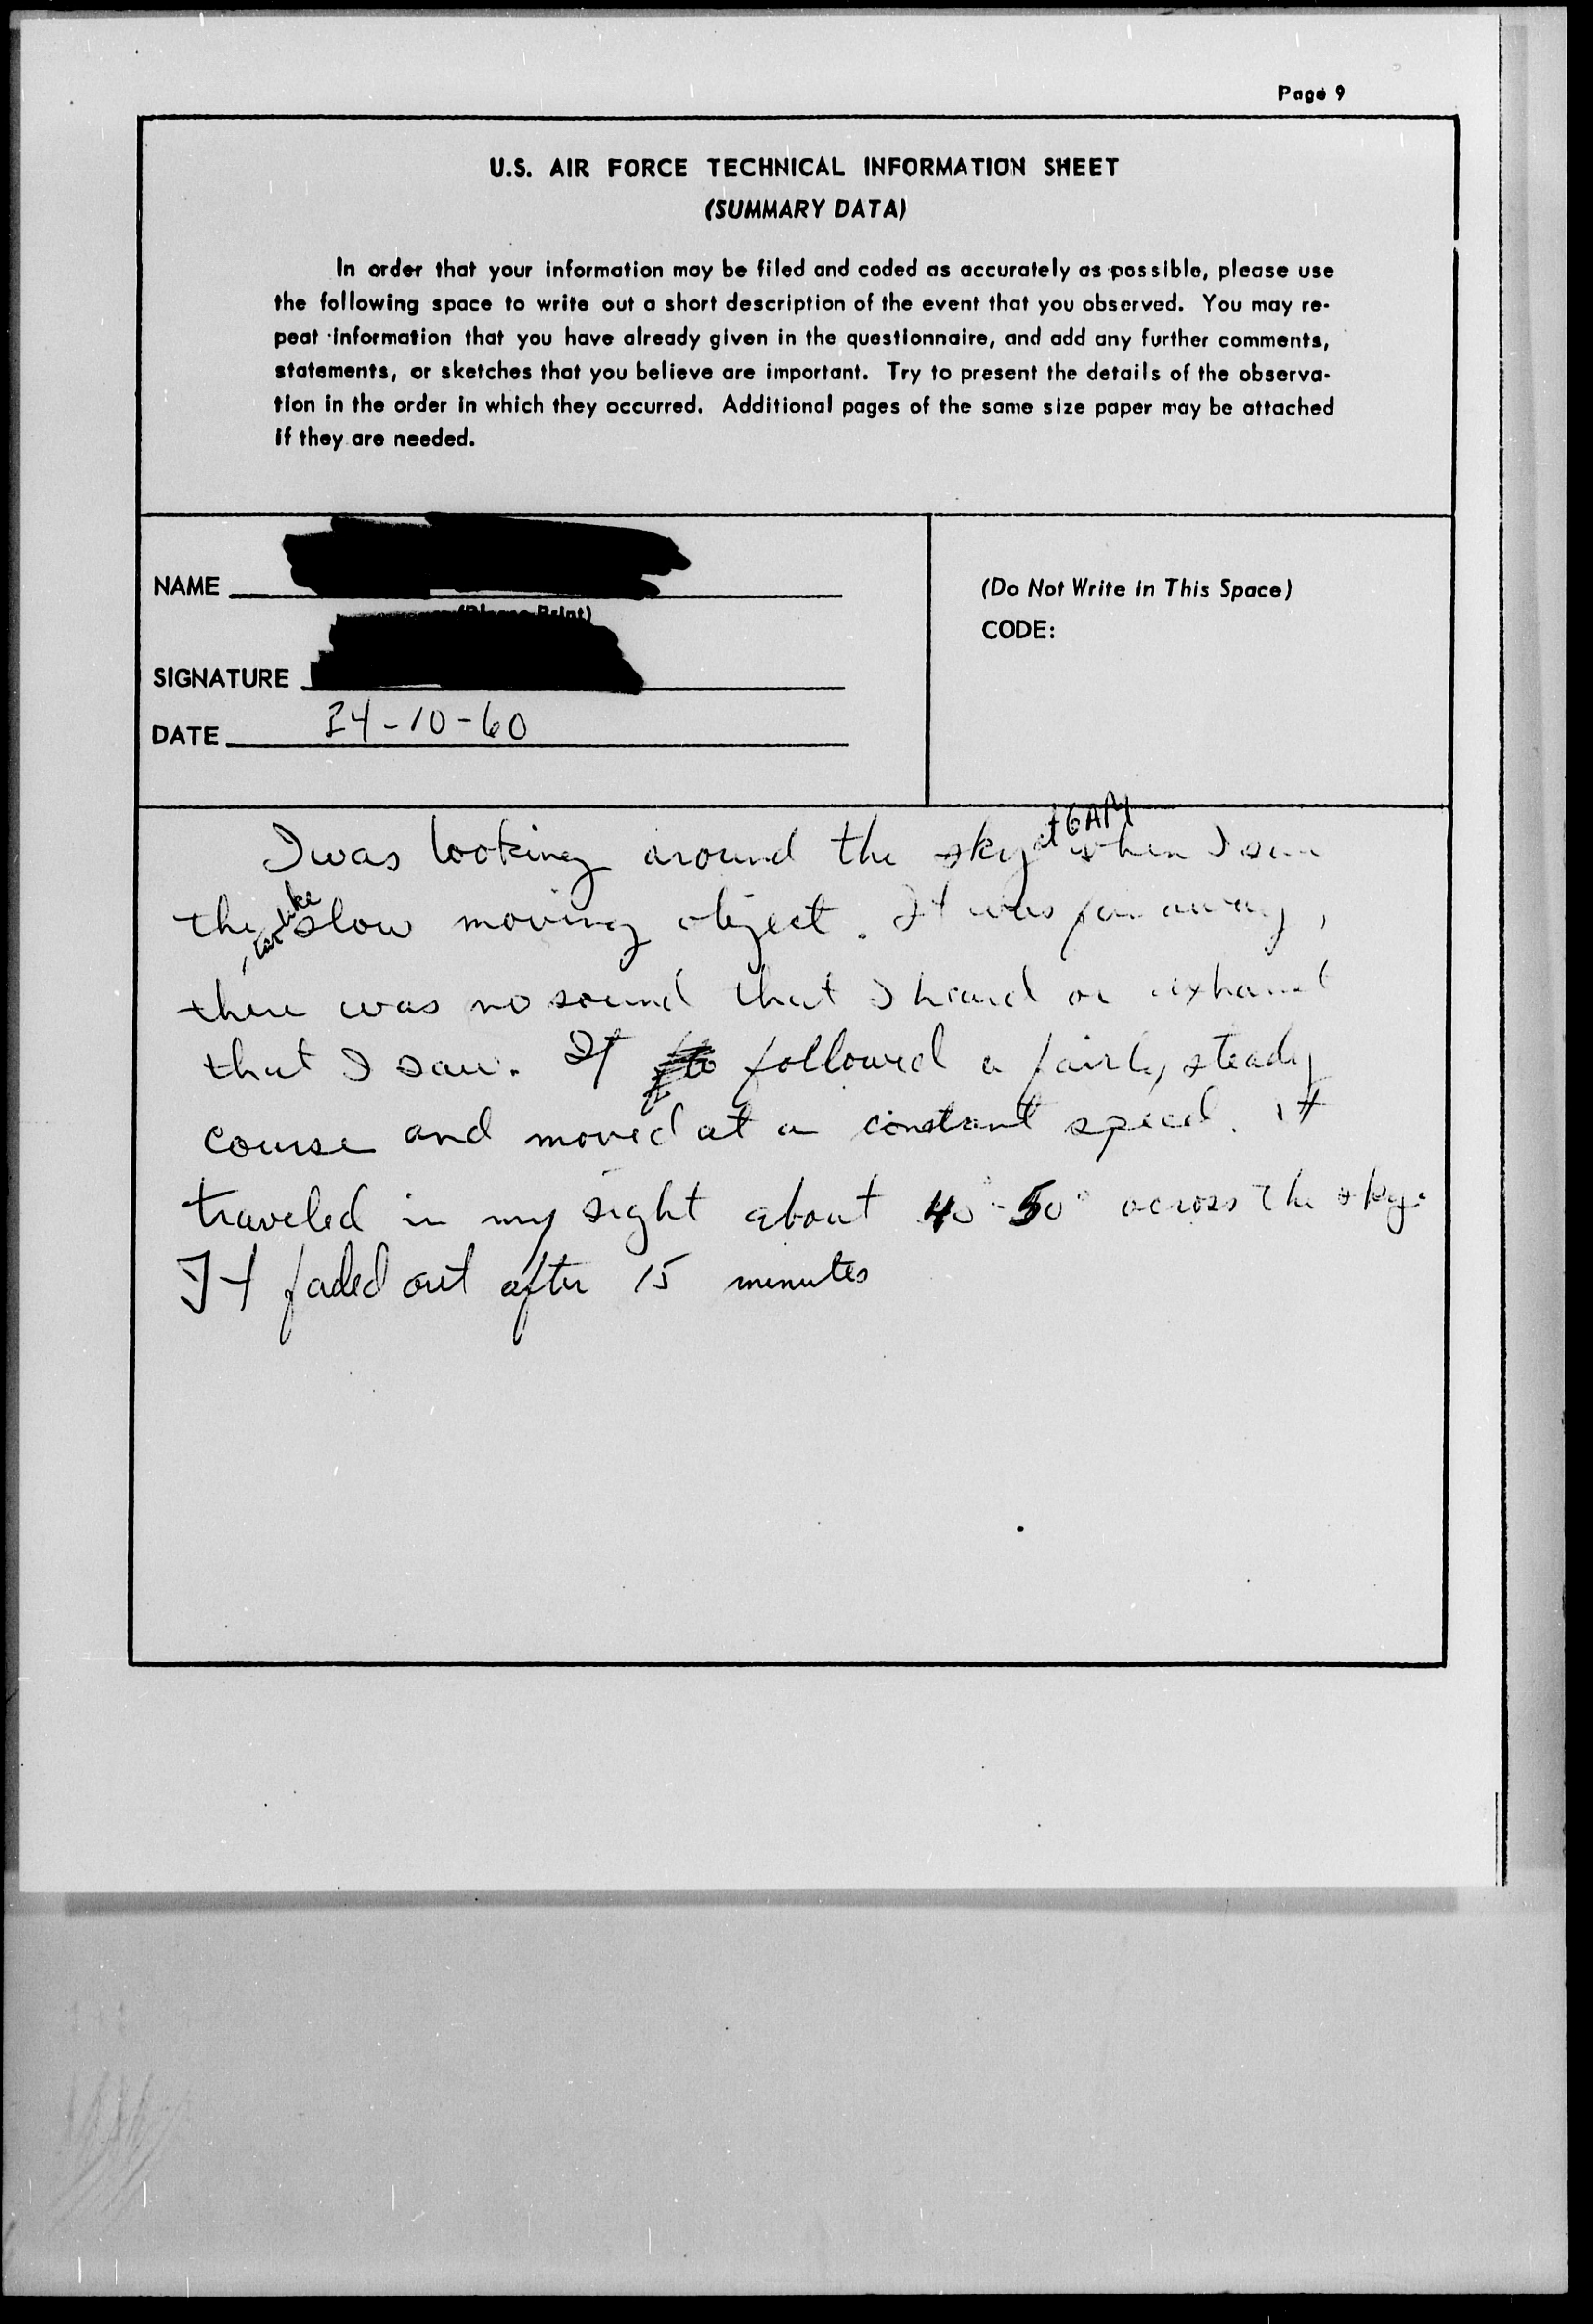 Page 9
U.S. AIR FORCE TECHNICAL INFORMATION SHEET
(SUMMARY DATA)
In order that your information may be filed and coded as accurately as possible, please use
the following space to write out a short description of the event that you observed. You may re-
peat information that you have already given in the questionnaire, and add any further comments,
statements, or sketches that you believe are important. Try to present the details of the observa-
tion in the order in which they occurred. Additional pages of the same size paper may be attached
if they are needed.
NAME
(Please Print)
SIGNATURE
DATE 24-10-60
(Do Not Write in This Space)
CODE:
I was looking around the sky at 6 AM when I saw
the like slow moving object. It was far away,
there was no sound that I heard or exhaust
that I saw. It followed a fairly steady
course and moved at a constant speed. it
traveled in my sight about 40°-50° across the sky.
It faded out after 15 minutes